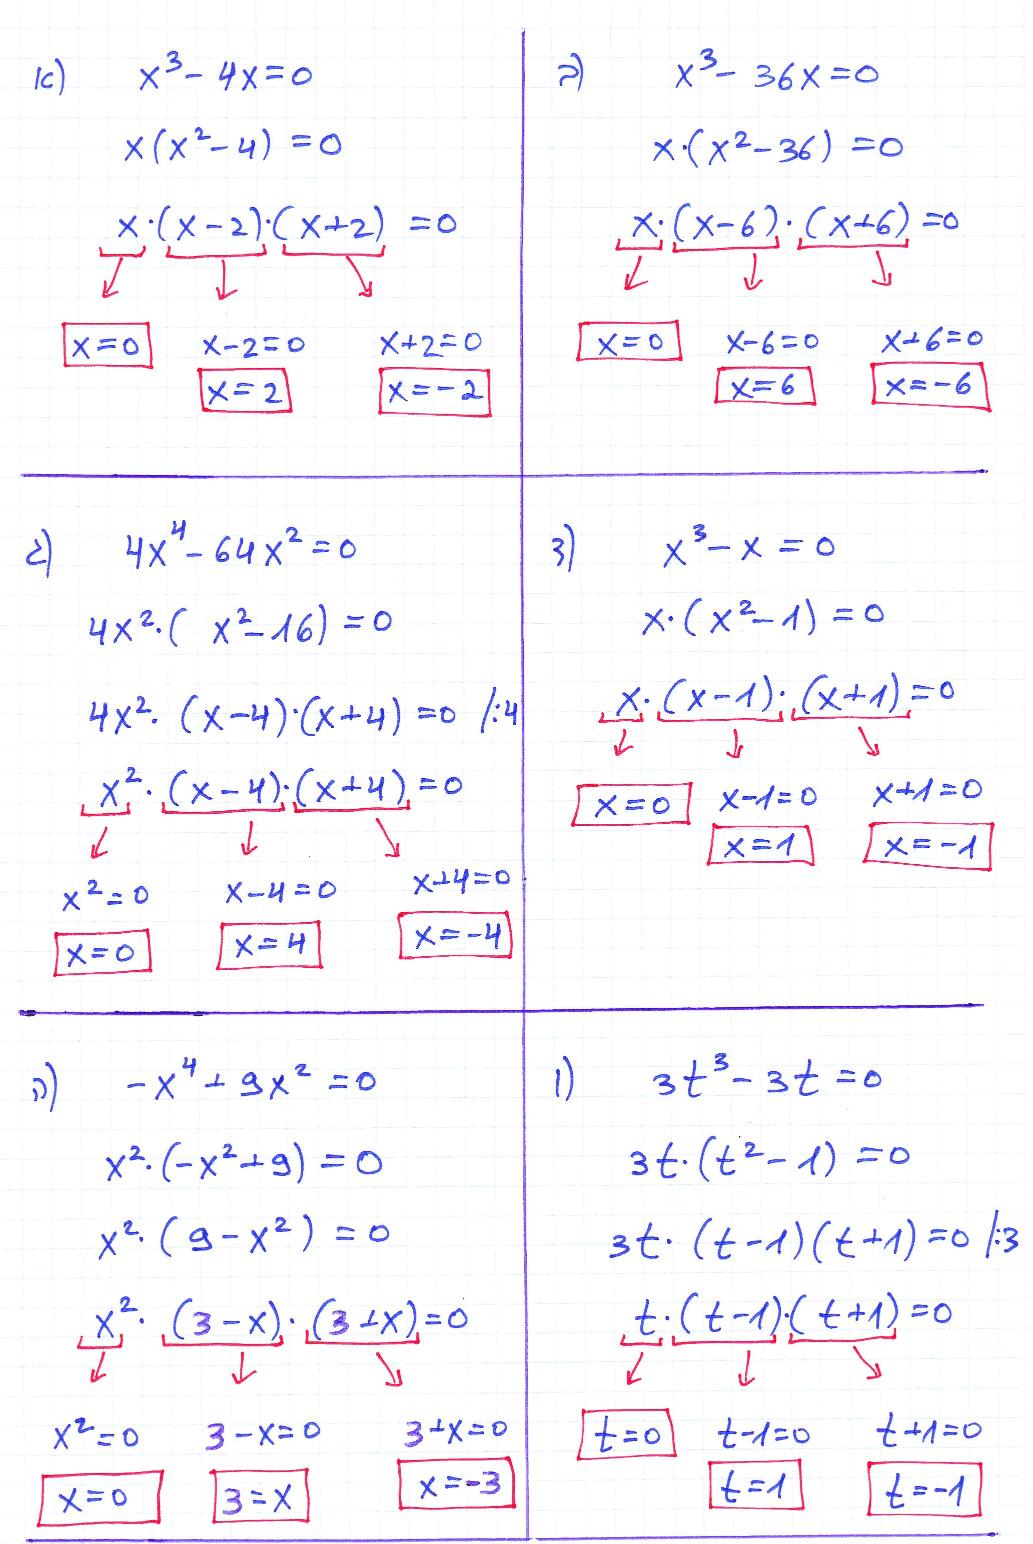 א) x³ - 4x = 0
x(x² - 4) = 0
x·(x-2)·(x+2) = 0
x=0 x-2=0 x+2=0
x=2 x=-2
ב) x³ - 36x = 0
x·(x² - 36) = 0
x·(x-6)·(x+6) = 0
x=0 x-6=0 x+6=0
x=6 x=-6
ג) 4x⁴ - 64x² = 0
4x²·( x² - 16) = 0
4x²· (x-4)·(x+4) = 0 /:4
x²·(x-4)·(x+4) = 0
x²=0 x-4=0 x+4=0
x=0 x=4 x=-4
ד) x³ - x = 0
x·(x² - 1) = 0
x·(x-1)·(x+1) = 0
x=0 x-1=0 x+1=0
x=1 x=-1
ה) -x⁴ + 9x² = 0
x²·(-x² + 9) = 0
x²·(9 - x²) = 0
x²·(3-x)·(3+x) = 0
x²=0 3-x=0 3+x=0
x=0 3=x x=-3
ו) 3t³ - 3t = 0
3t·(t² - 1) = 0
3t·(t-1)(t+1) = 0 /:3
t·(t-1)·(t+1) = 0
t=0 t-1=0 t+1=0
t=1 t=-1